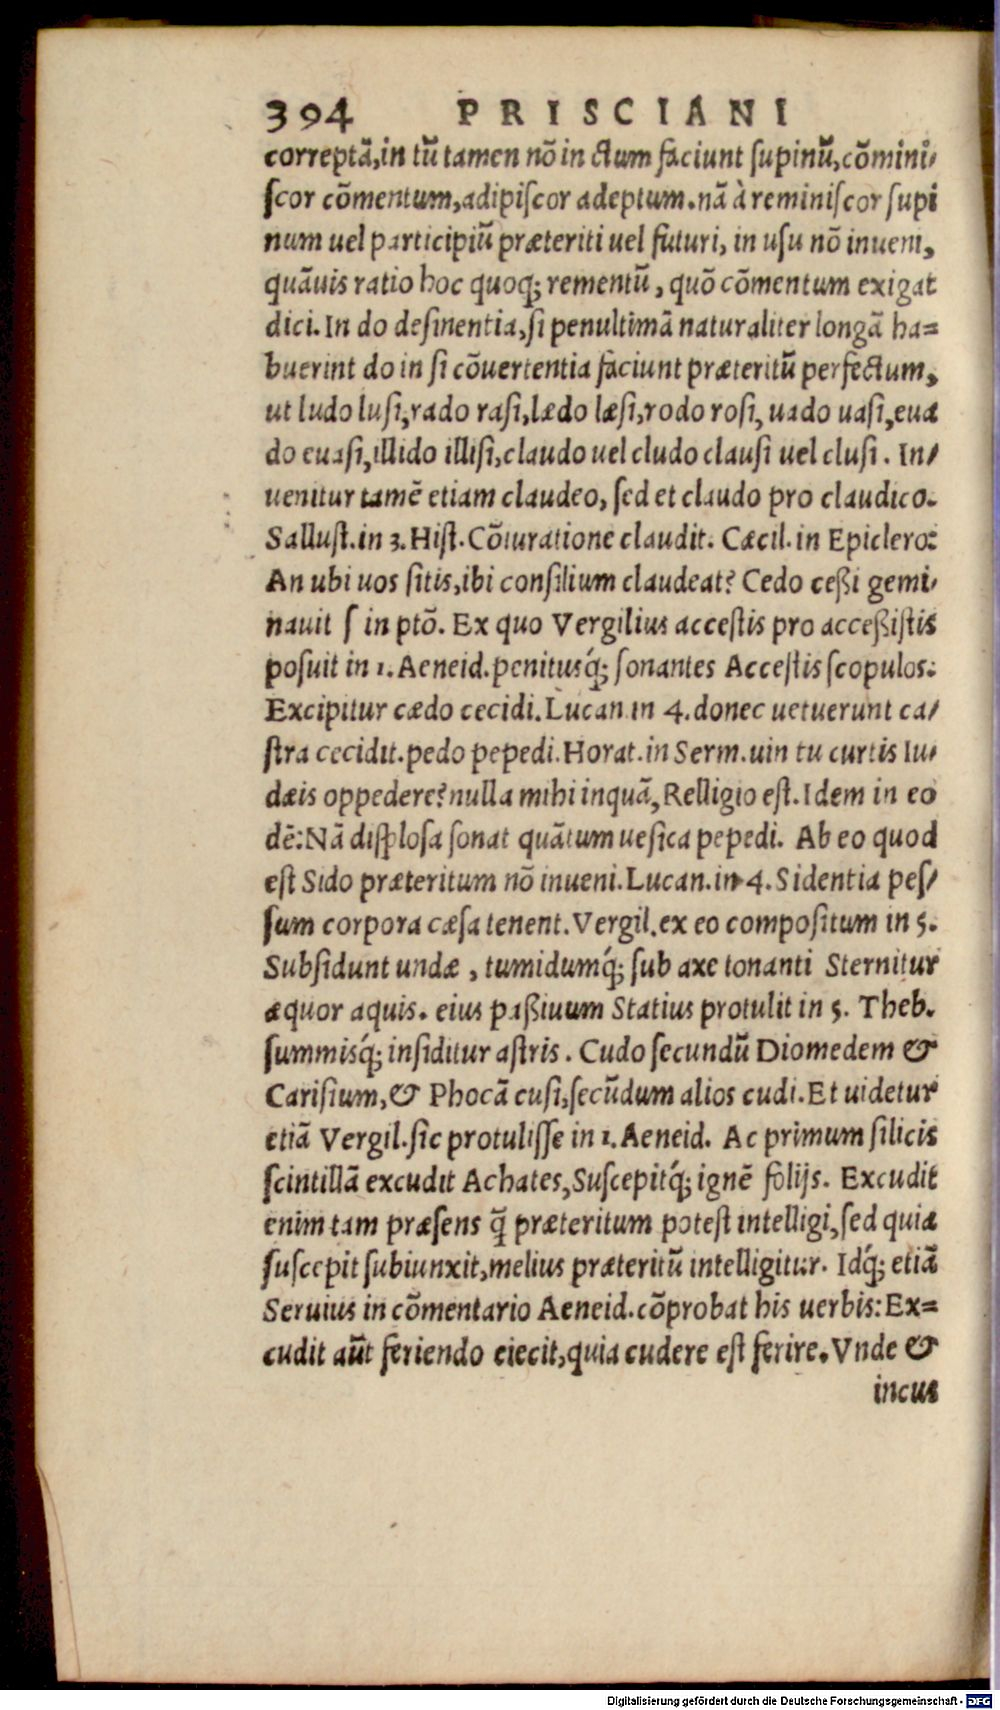 394 PRISCIANI
correptã, in tũ tamen nõ in ctum faciunt ſupinũ, cõmini/
ſcor cõmentum, adipiſcor adeptum. nã à reminiſcor ſupi
num uel participiũ præteriti uel futuri, in uſu nõ inueni,
quãuis ratio hoc quoq; rementũ, quõ cõmentum exigat
dici. In do deſinentia, ſi penultimã naturaliter longã ha=
buerint do in ſi cõuertentia faciunt præteritũ perfectum,
ut ludo luſi, rado raſi, lædo læſi, rodo roſi, uado uaſi, eua
do euaſi, illido illiſi, claudo uel cludo clauſi uel cluſi. In/
uenitur tamẽ etiam claudeo, ſed et claudo pro claudico.
Salluſt. in 3. Hiſt. Cõiuratione claudit. Cæcil. in Epiclero:
An ubi uos ſitis, ibi conſilium claudeat? Cedo ceßi gemi/
nauit ſ in ptõ. Ex quo Vergilius acceſtis pro acceßiſtis
poſuit in 1. Aeneid. penitusq́; ſonantes Acceſtis ſcopulos.
Excipitur cædo cecidi. Lucan. in 4. donec uetuerunt ca/
ſtra cecidit. pedo pepedi. Horat. in Serm. uin tu curtis Iu/
dæis oppedere? nulla mihi inquã, Relligio eſt. Idem in eo
dẽ: Nã diſploſa ſonat quãtum ueſica pepedi. Ab eo quod
eſt Sido præteritum nõ inueni. Lucan. in 4. Sidentia peſ/
ſum corpora cæſa tenent. Vergil. ex eo compoſitum in 5.
Subſidunt undæ, tumidumq́; ſub axe tonanti Sternitur
æquor aquis. eius paßiuum Statius protulit in 5. Theb.
ſummisq́; inſiditur aſtris. Cudo ſecundũ Diomedem &
Cariſium, & Phocã cuſi, ſecũdum alios cudi. Et uidetur
etiã Vergil. ſic protuliſſe in 1. Aeneid. Ac primum ſilicis
ſcintillã excudit Achates, Suſcepitq́; ignẽ folijs. Excudit
enim tam præſens q̃ præteritum poteſt intelligi, ſed quia
ſuſcepit ſubiunxit, melius præteritũ intelligitur. Idq́; etiã
Seruius in cõmentario Aeneid. cõprobat his uerbis: Ex=
cudit aũt feriendo eiecit, quia cudere eſt ferire. Vnde &
incus
Digitalisierung gefördert durch die Deutsche Forschungsgemeinschaft - DFG